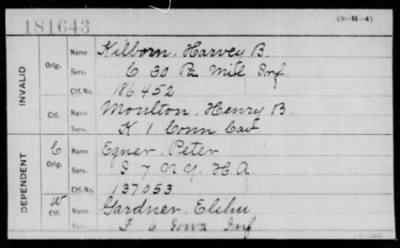 181643
(3-M-4)
INVALID
Orig.
Name Kilborn, Harvey B.
Serv. C 30 Pa Mil Inf.
Ctf. No. 186452
Ctf.
Name Moulton, Henry B.
Serv. K 1 Conn Cav
DEPENDENT
C
Orig.
Name Egner Peter
Serv. I 7 N.Y. H.A.
Ctf. No. 137053
W
Ctf.
Name Gardner Elihu
Serv. F 6 Iowa Inf